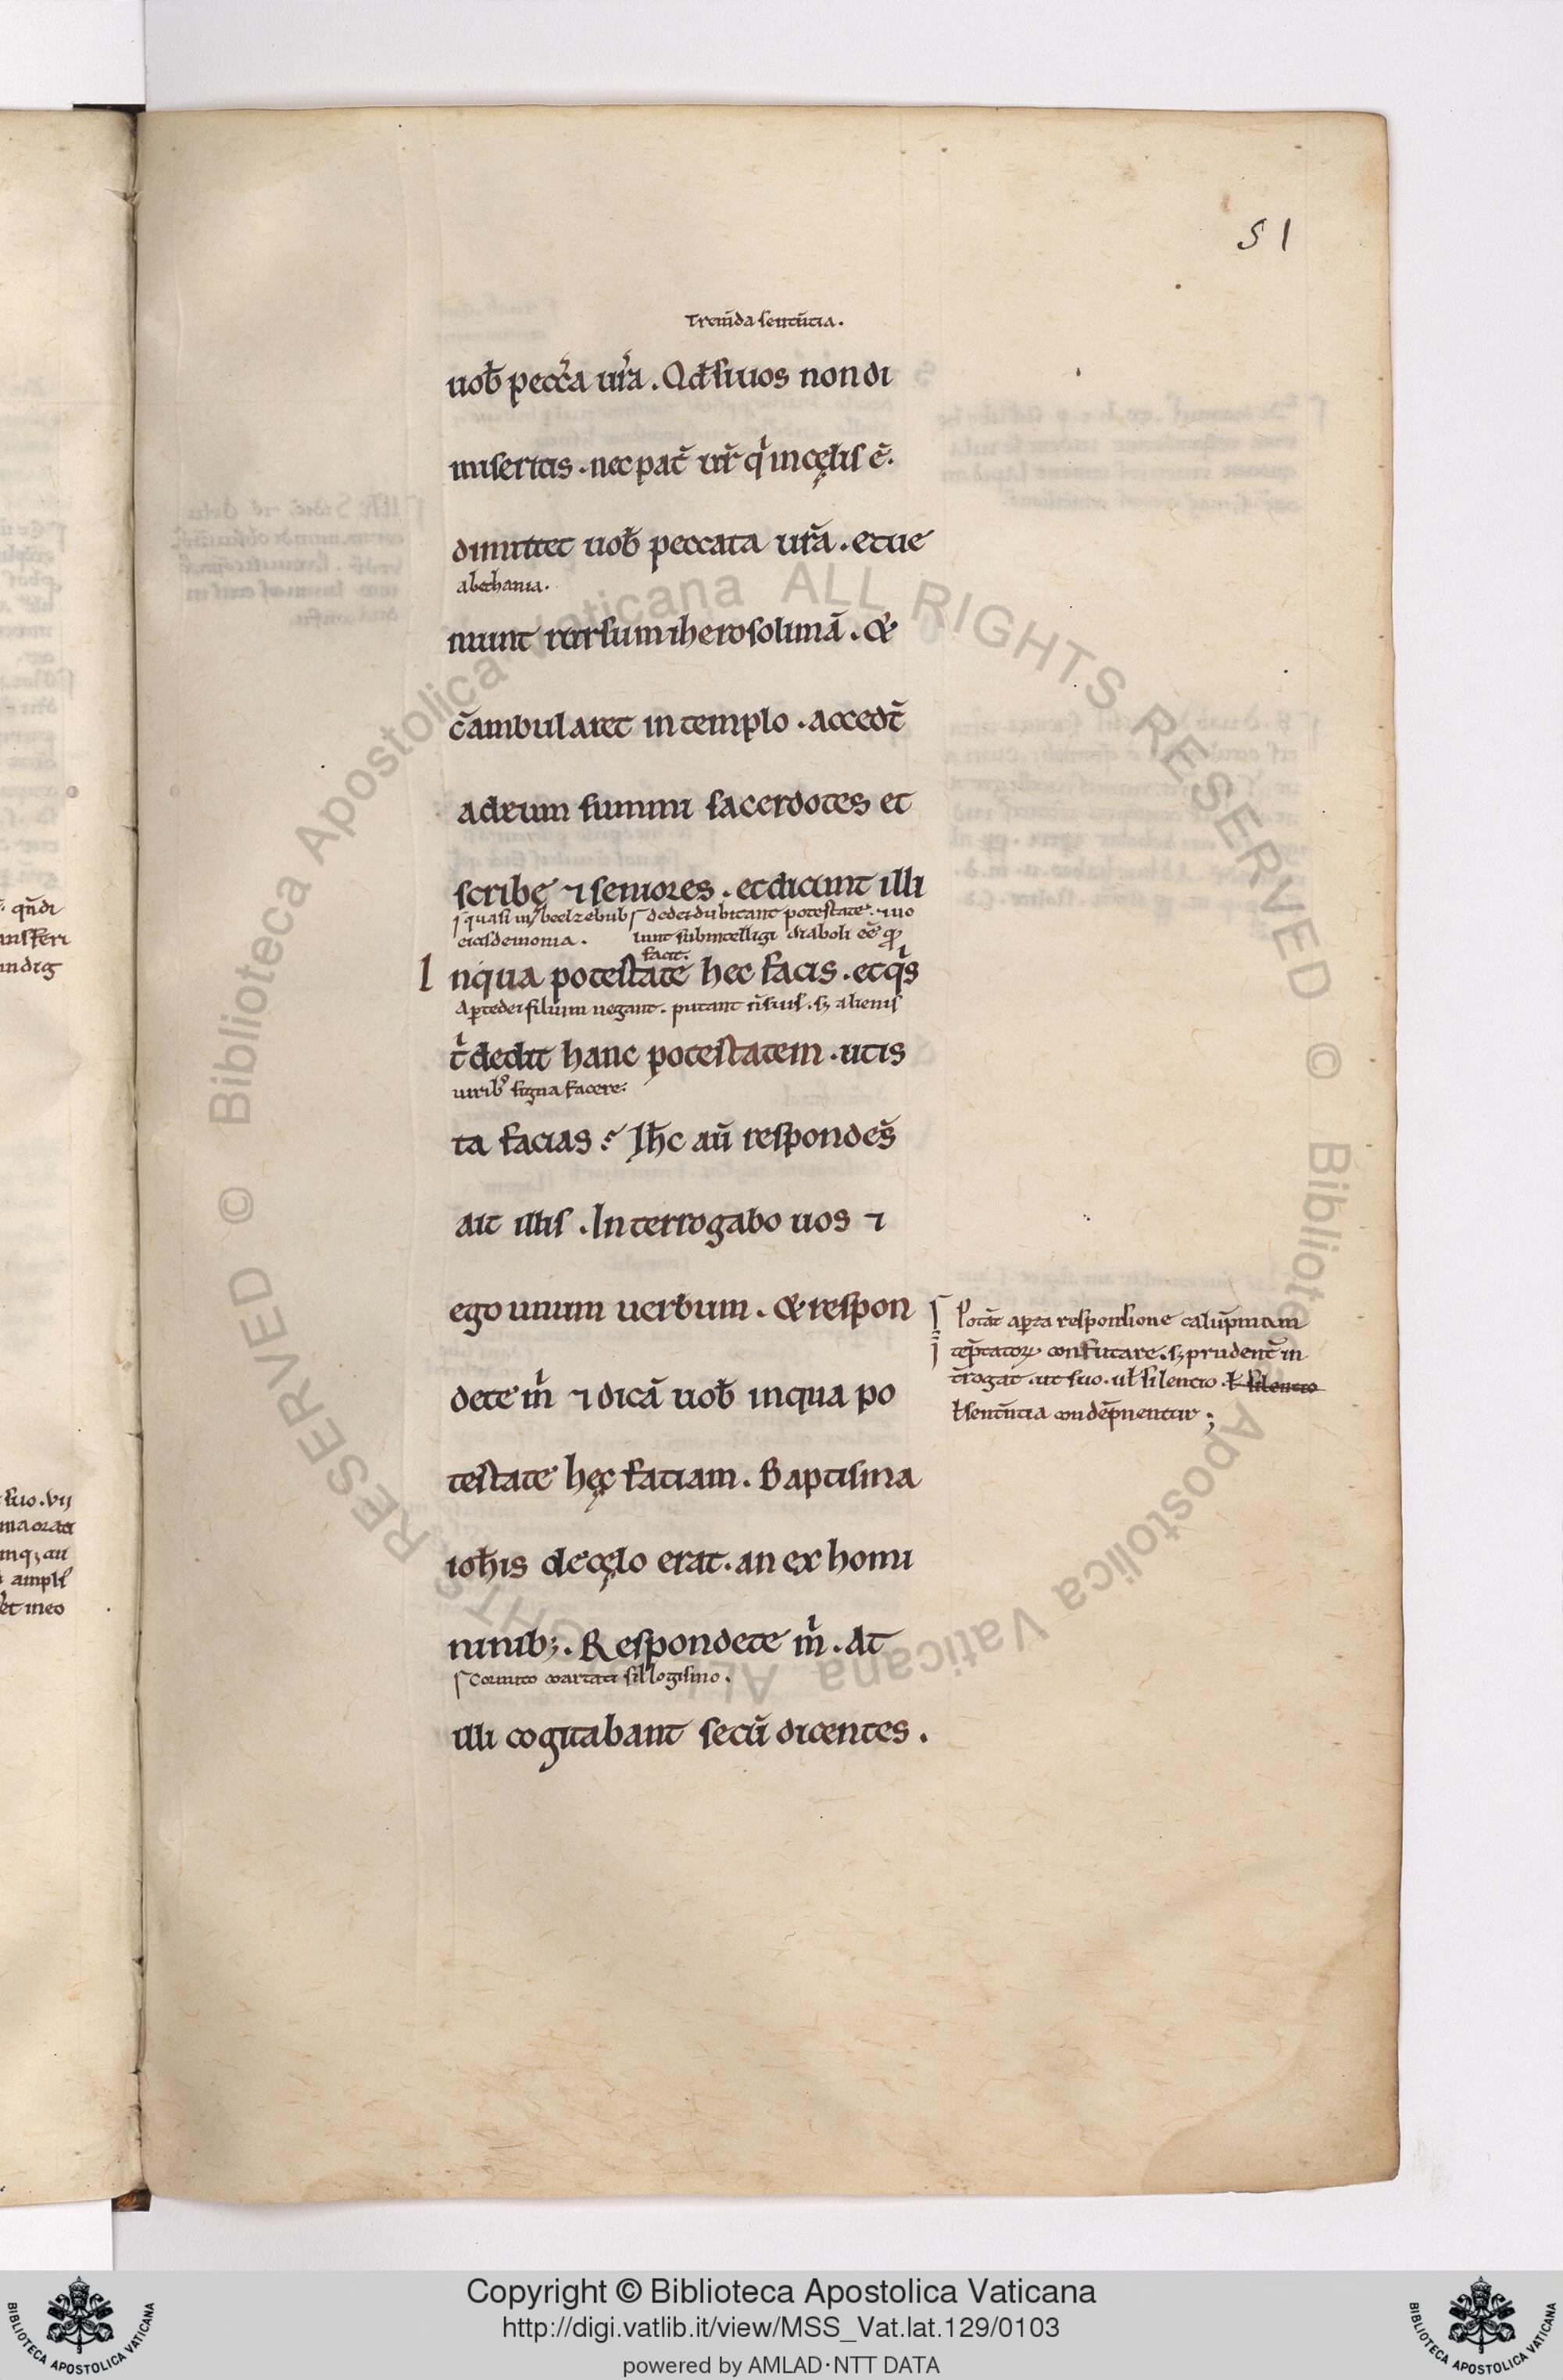 51
Trem̄da sentn̄tia.
uob̄ pecc̄a ur̄a. Qđ si uos non di
miseritis. nec pat̄ ur̄ qͥ in cęlis ē.
dimittet uob̄ peccata ur̄a. et ue
a bethania.
niunt rursum iherosolimā. &
c̄ ambularet in templo. accedt̄
ad eum summi sacerdotes et
scribę ⁊ seniores. et dicunt illi
quasi in beelzebub
eicis demonia.
de dei dubitant potestate. ⁊ uo
lunt subintelligi diaboli eē qđ
facit.
In qua potestate hec facis. et qͥs
Aꝑte dei filium negant. putant n̄ suis. sꝫ alienis
tͥ dedit hanc potestatem. ut is
uiribꝰ signa facere.
ta facias? Ih̄c aū respondēs
ait illis. Interrogabo uos ⁊
ego unum uerbum. & respon
dete mͥ ⁊ dicā uob̄ in qua po
testate hęc fatiam. Baptisma
ioh̄is de cęlo erat. an ex homi
nibꝫ. Respondete mͥ. At
Cornuto coartati sillogismo.
illi cogitabant secū dicentes.
Potāt aꝑta responsione calūpniam
tēptatoꝝ confutare. sꝫ prudent̄ in
t̄rogat. ut suo. ul̄ silentio. ł silentio
ł sentn̄tia condēpnentur;
qn̄di
ansferi
indig
suo. vij
ma orati
inqꝫ au
ampl̄
et meo
Copyright © Biblioteca Apostolica Vaticana
http://digi.vatlib.it/view/MSS_Vat.lat.129/0103
powered by AMLAD·NTT DATA
BIBLIOTECA APOSTOLICA VATICANA
BIBLIOTECA APOSTOLICA VATICANA
© Biblioteca Apostolica Vaticana ALL RIGHTS RESERVED
© Biblioteca Apostolica Vaticana ALL RIGHTS RESERVED